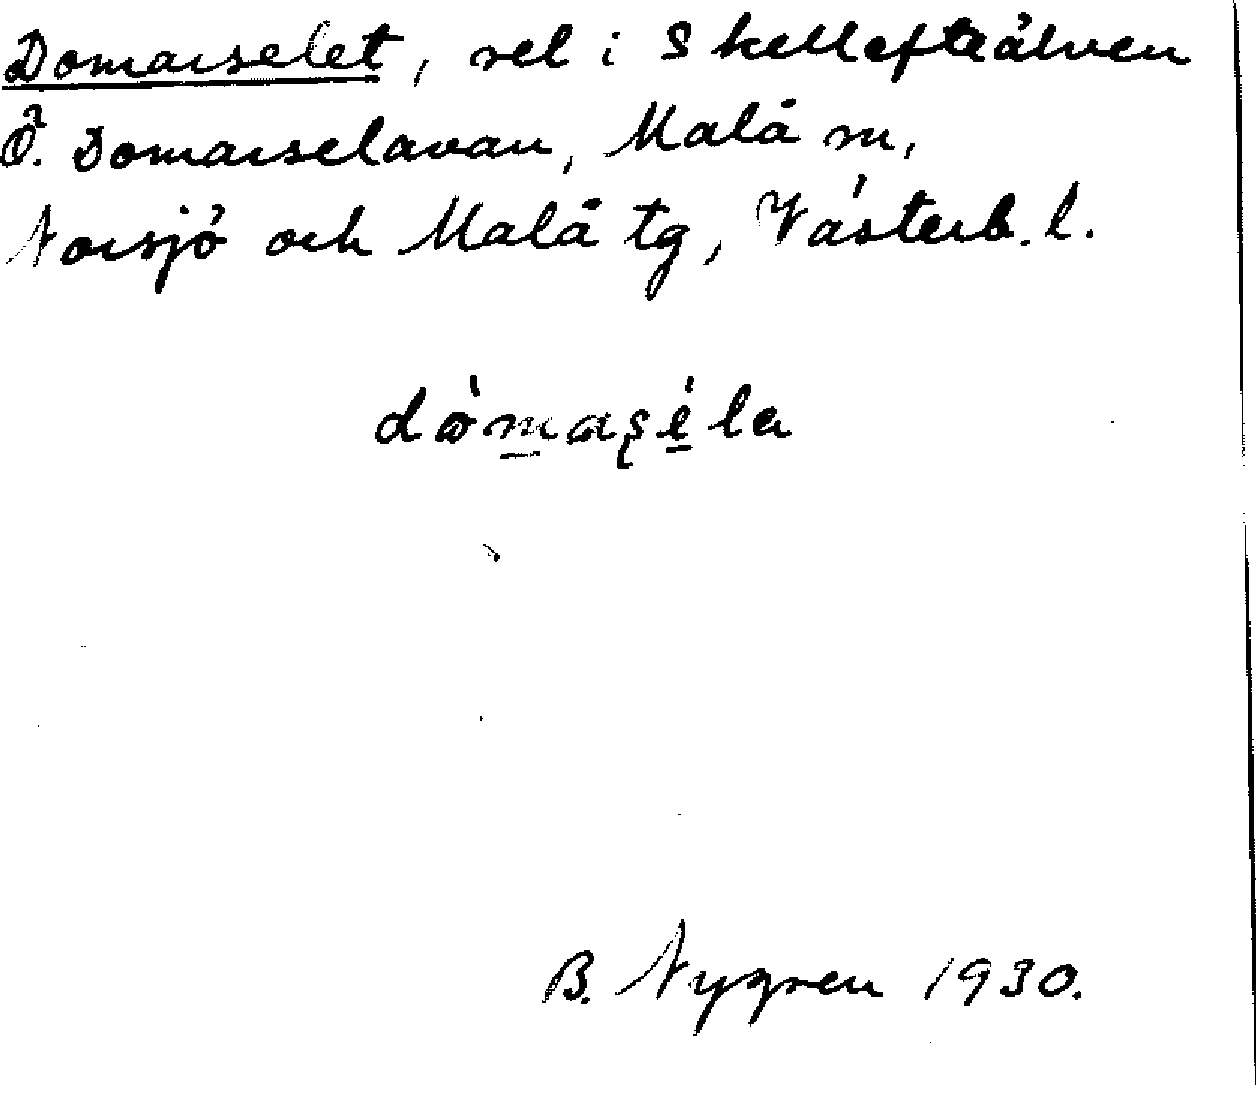 Domarselet, sel i Skellefteälven
Ö. Domarselavan, Malå sn,
Norsjö och Malå tg, Västerb. l.
dòmaʂéla
B. Nygren 1930.